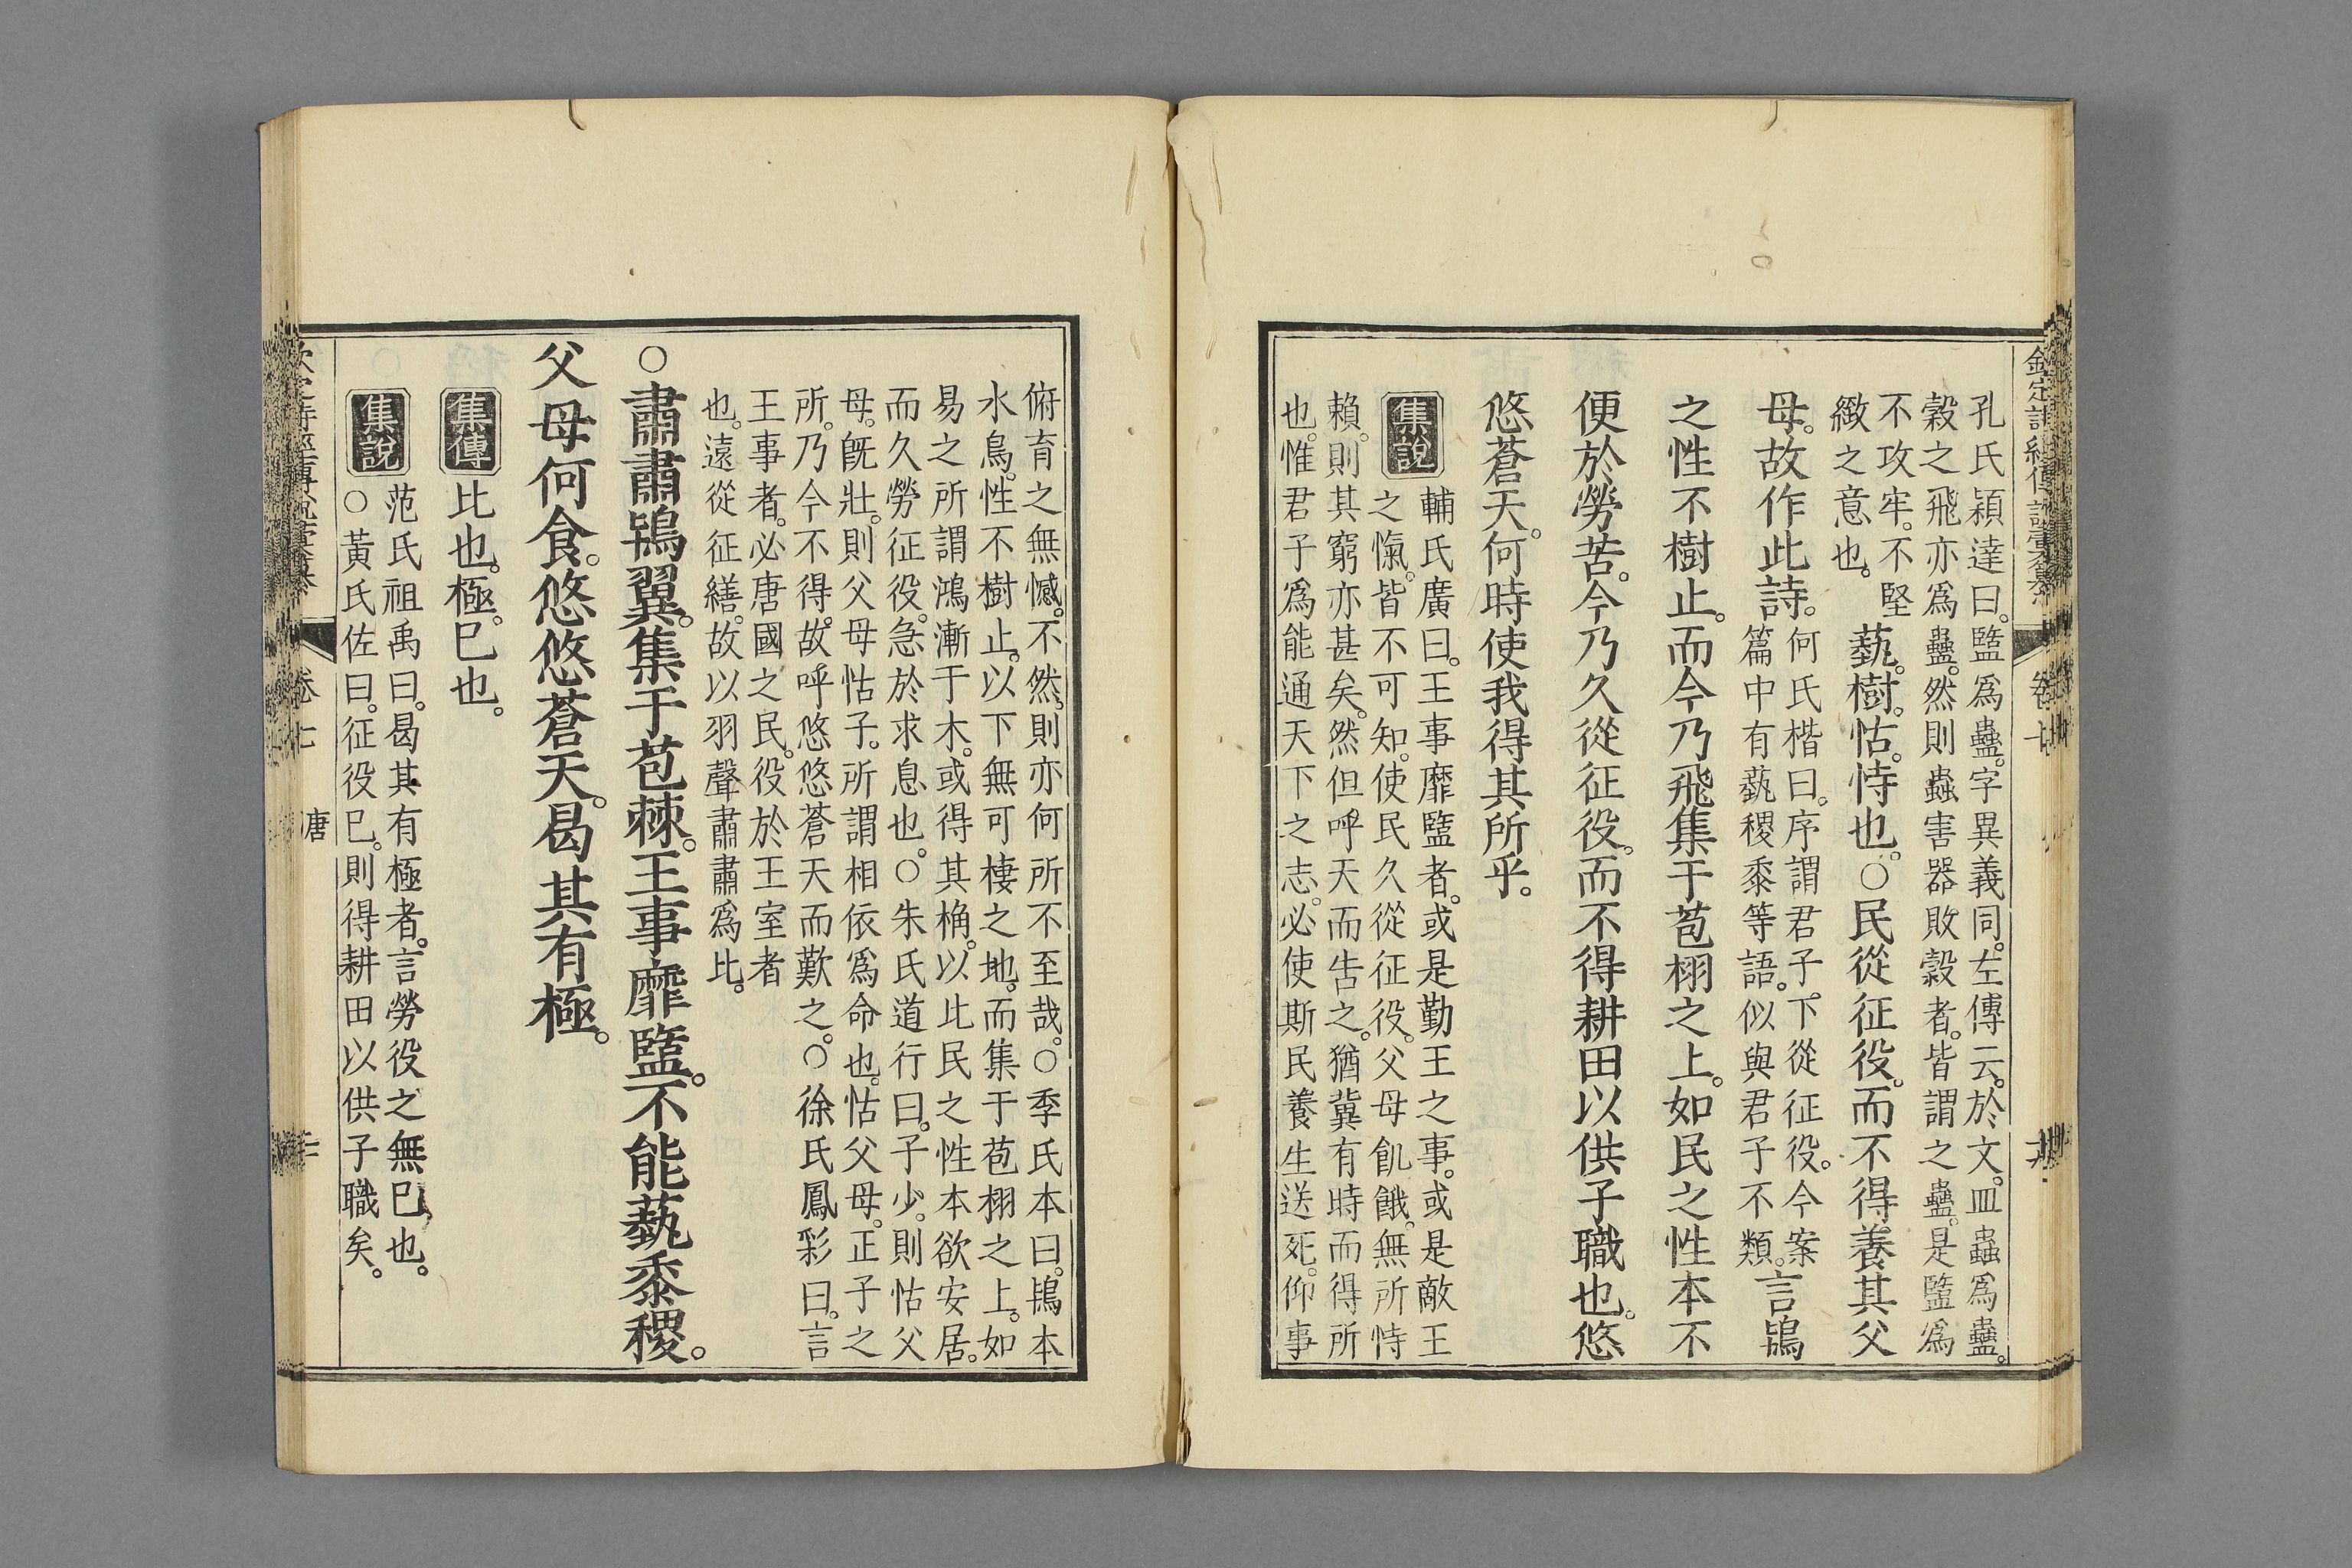 孔氏穎達曰。盬爲蠱。字異義同。左傳云。於文。皿蟲爲蠱。
穀之飛亦爲蠱。然則蟲害器敗穀者。皆謂之蠱。是盬爲
不攻牢。不堅
緻之意也。
蓺。樹。怙。恃也。○民從征役。而不得養其父
母。故作此詩。
何氏楷曰。序謂君子。下從征役。今案
篇中有蓺稷黍等語。似與君子不類。
言鴇
之性不樹止。而今乃飛集于苞栩之上。如民之性本不
便於勞苦。今乃久從征役。而不得耕田以供子職也。悠
悠蒼天。何時使我得其所乎。
集說
輔氏廣曰。王事靡盬者。或是勤王之事。或是敵王
之愾。皆不可知。使民久從征役。父母飢餓。無所恃
賴。則其窮亦甚矣。然但呼天而告之。猶冀有時而得所
也。惟君子爲能通天下之志。必使斯民養生送死。仰事
俯育之無憾。不然。則亦何所不至哉。○季氏本曰。鴇本
水鳥。性不樹止。以下無可棲之地。而集于苞栩之上。如
易之所謂鴻漸于木。或得其桷。以比民之性本欲安居。
而久勞征役。急於求息也。○朱氏道行曰。子少。則怙父
母。旣壯。則父母怙子。所謂相依爲命也。怙父母。正子之
所。乃今不得。故呼悠悠蒼天而歎之。○徐氏鳳彩曰。言
王事者。必唐國之民。役於王室者
也。遠從征繕。故以羽聲肅肅爲比。
○肅肅鴇翼。集于苞棘。王事靡盬。不能蓺黍稷。
父母何食。悠悠蒼天。曷其有極。
集傳
比也。極。已也。
集說
范氏祖禹曰。曷其有極者。言勞役之無已也。
○黃氏佐曰。征役已。則得耕田以供子職矣。
卷七
唐